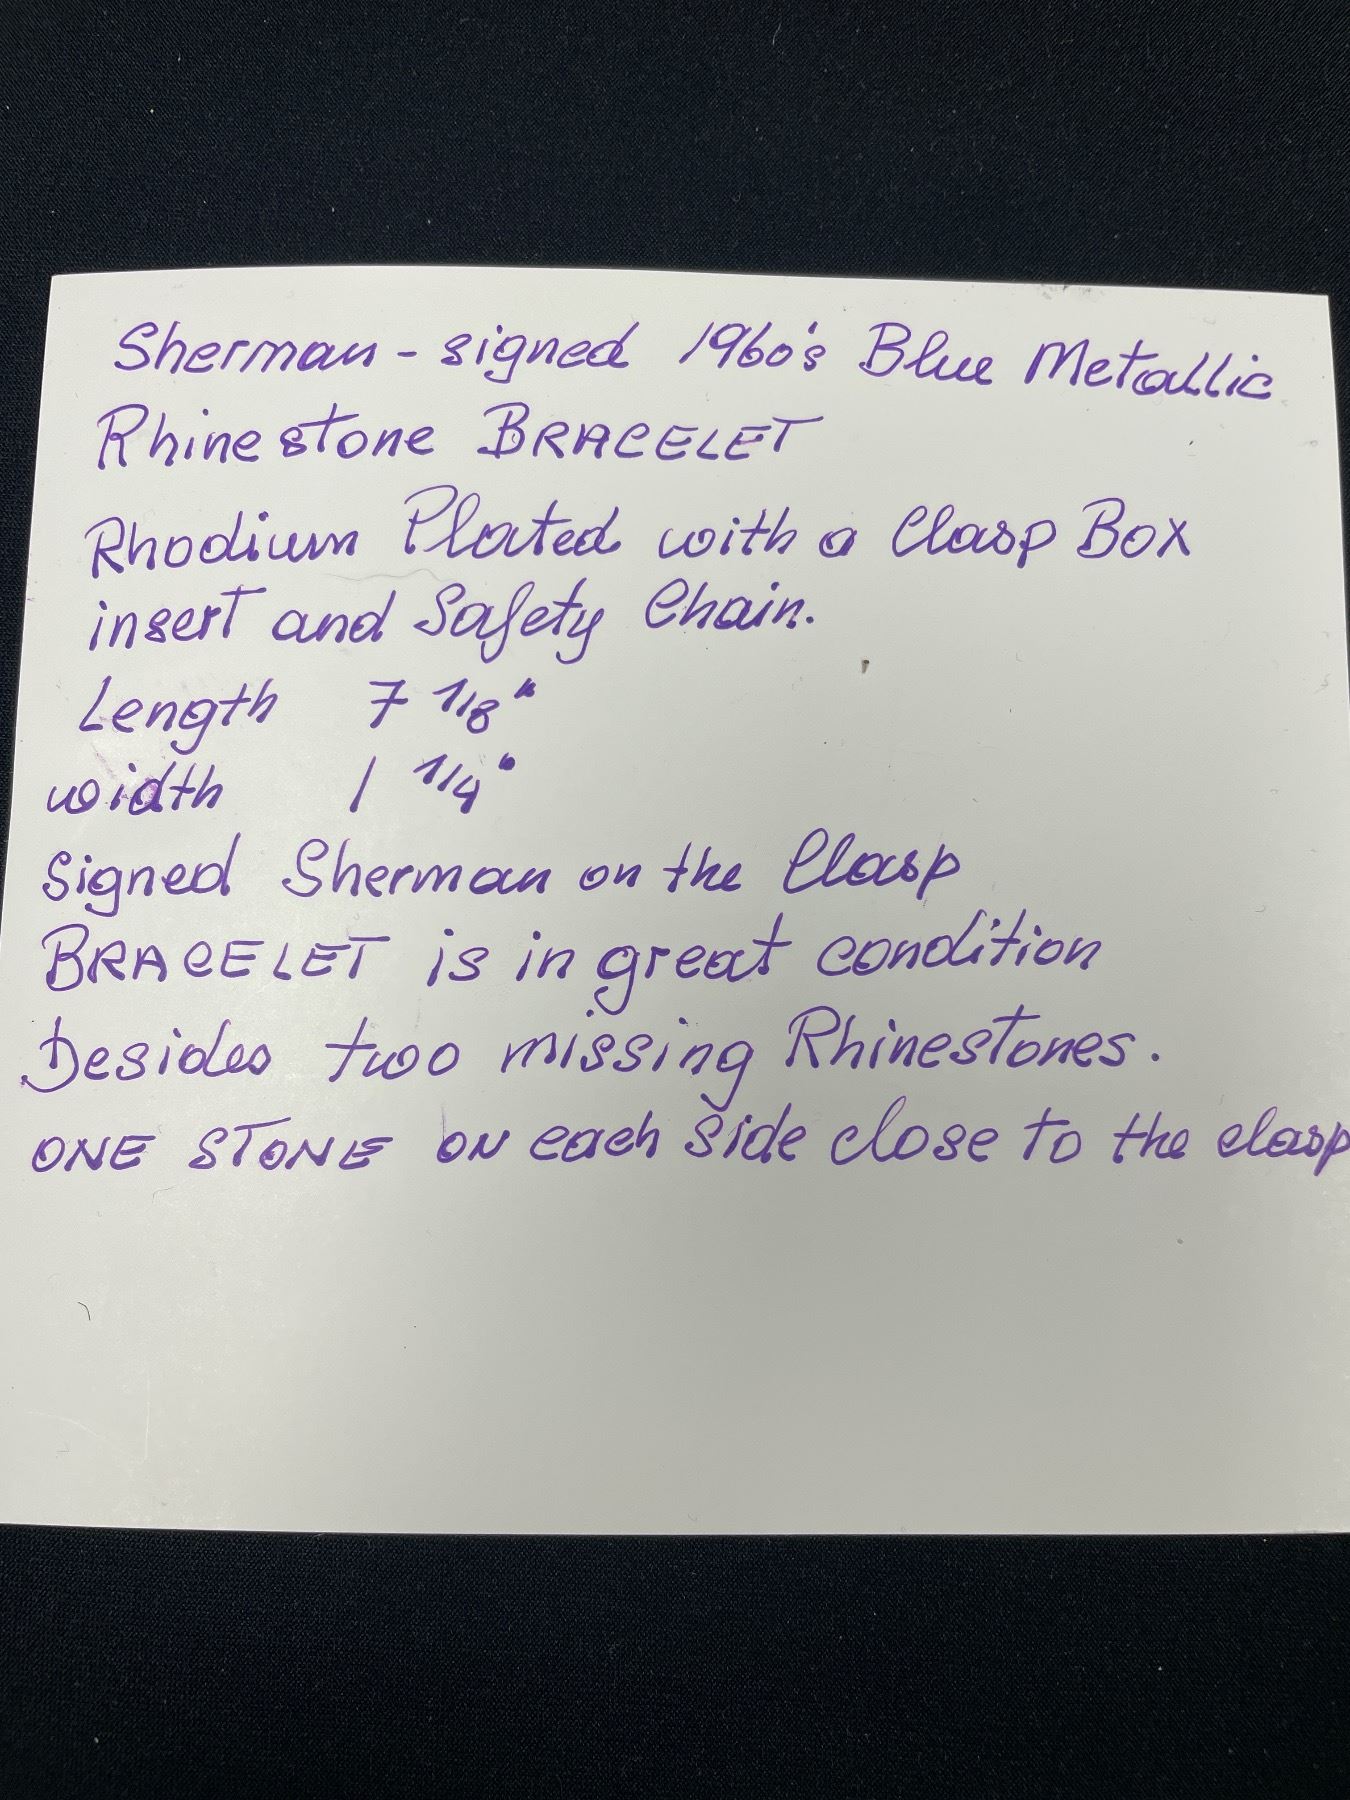 Sherman - signed 1960's Blue Metallic
Rhinestone BRACELET
Rhodium Plated with a Clasp Box
insert and Safety Chain.
Length 7 1/8"
width 1 1/4"
Signed Sherman on the Clasp
BRACELET is in great condition
Besides two missing Rhinestones.
ONE STONE ON each side close to the clasp